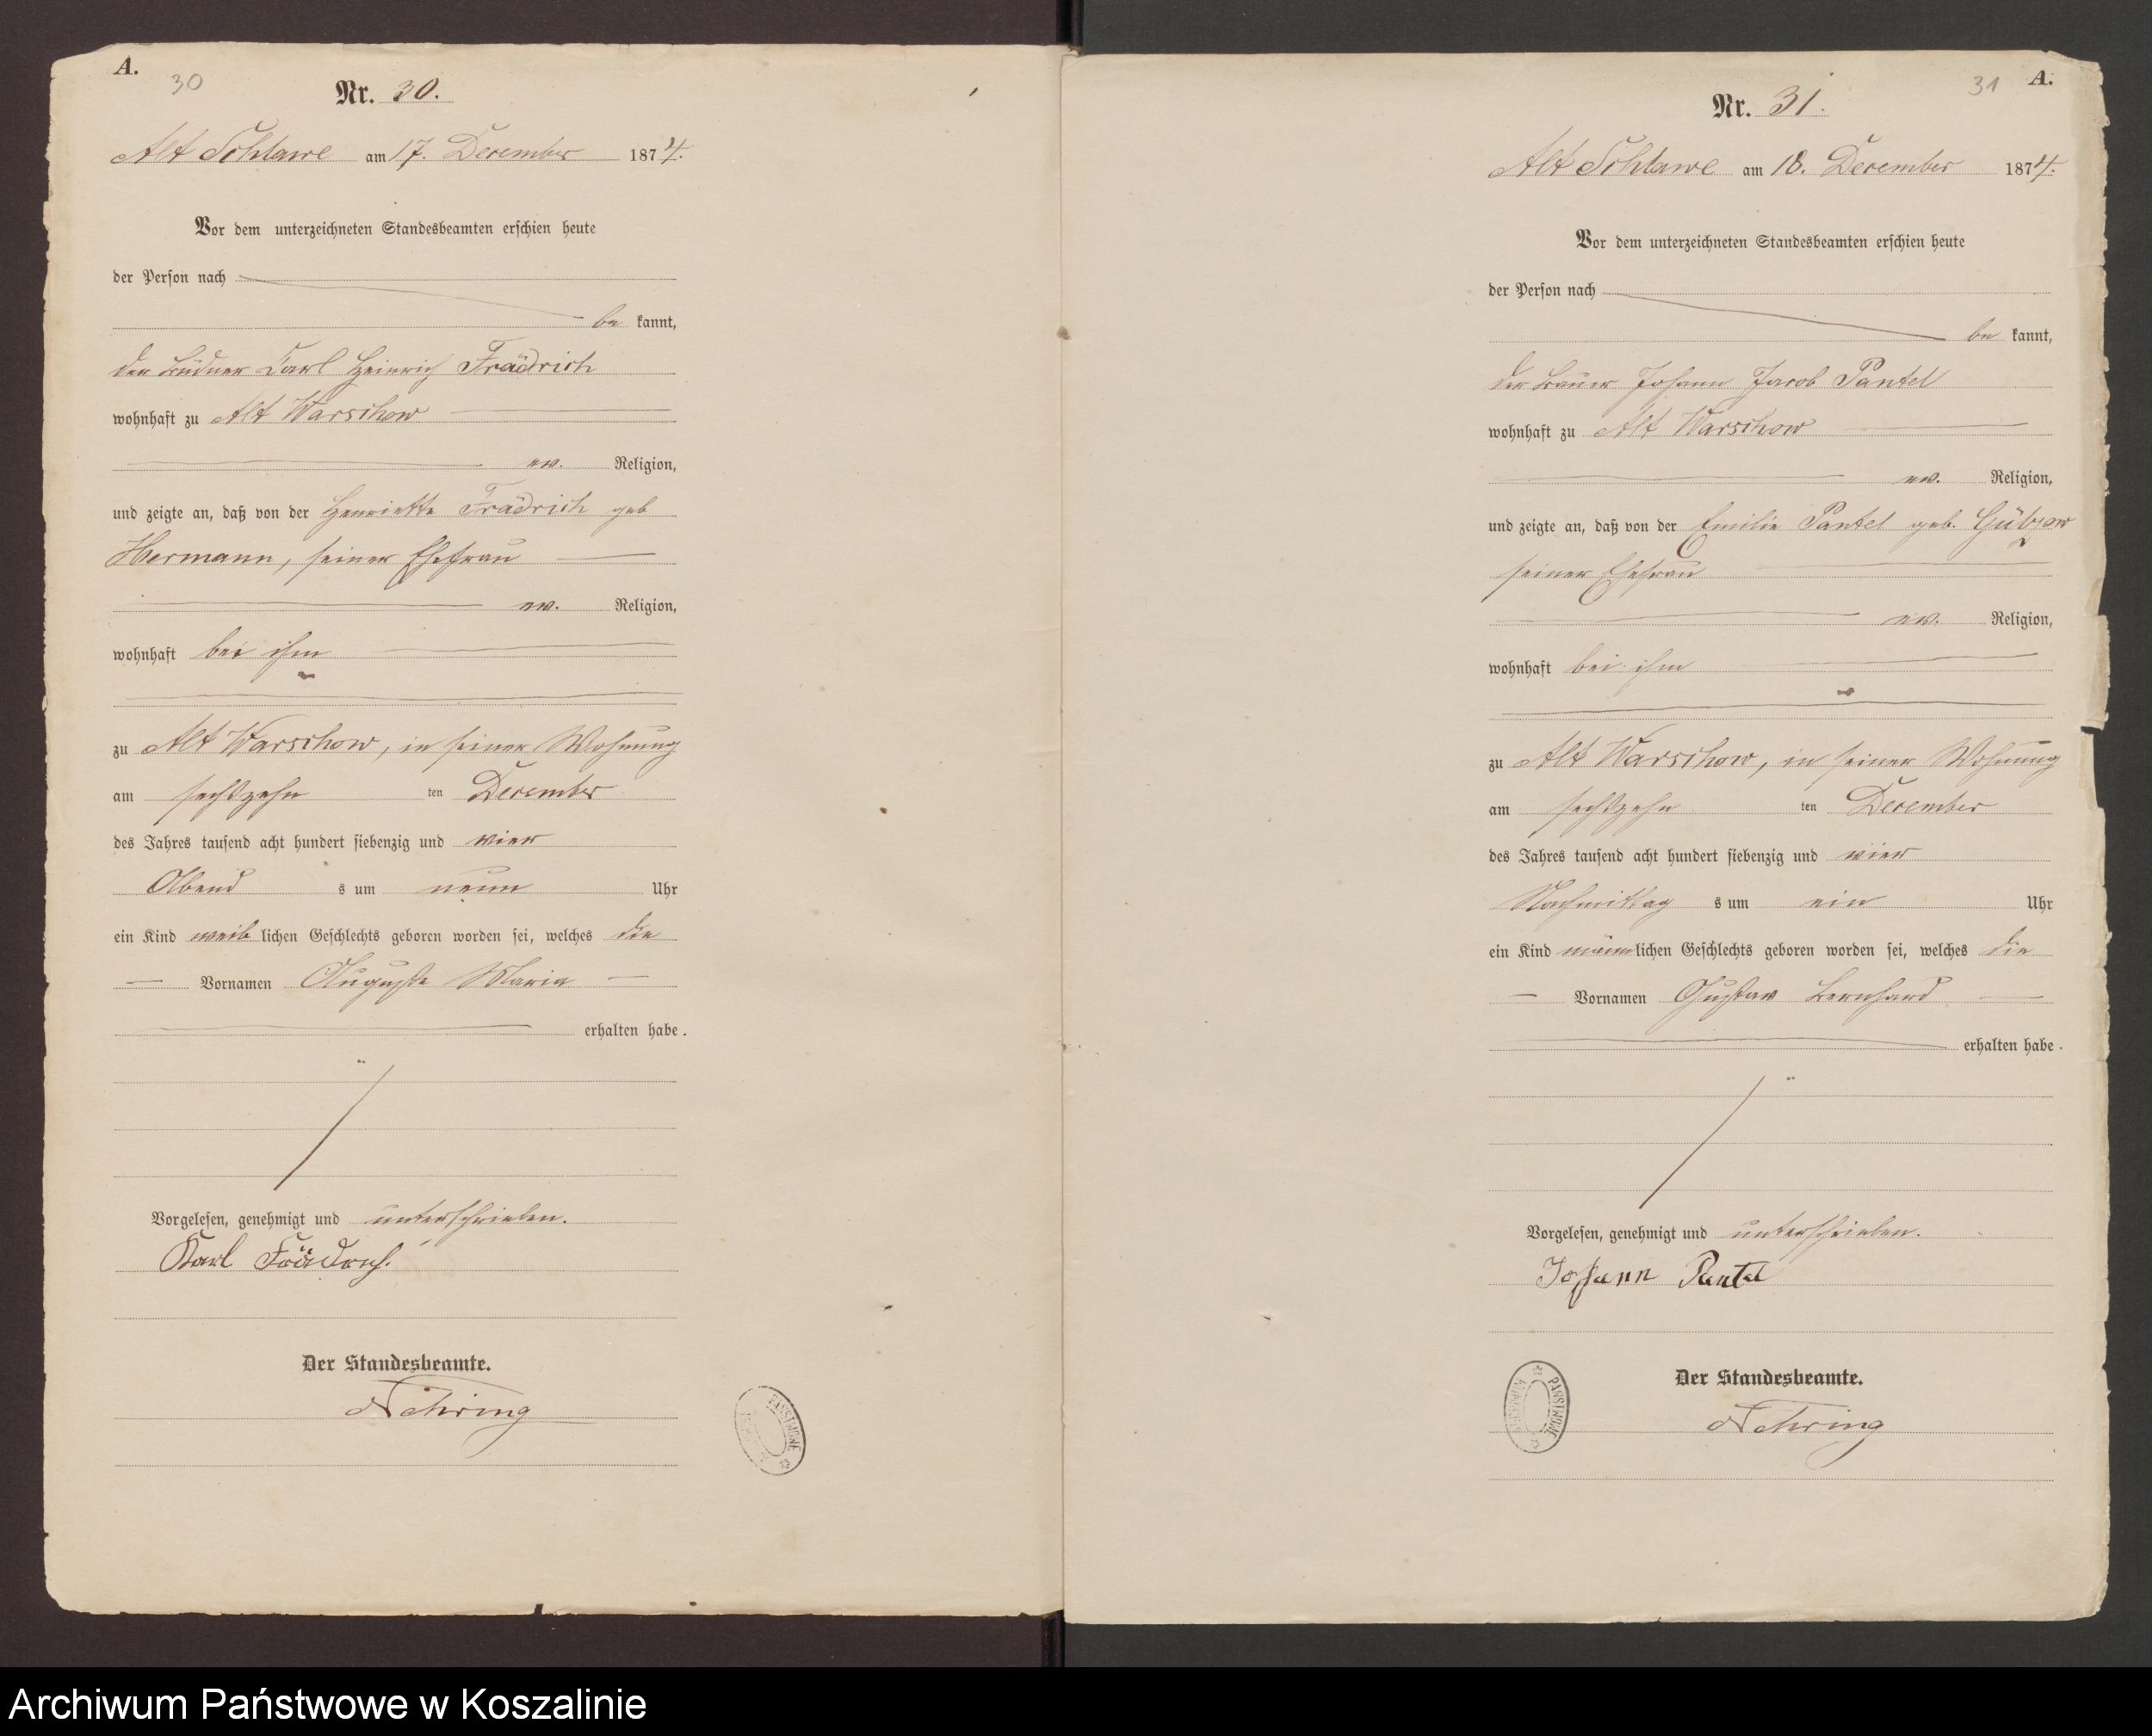 A.
30
Nr. 30.
Alt Schlawe am 17. December 1874.
Vor dem unterzeichneten Standesbeamten erschien heute
der Person nach
be kannt,
der Büdner Carl Heinrich Frädrich
wohnhaft zu Alt Warschow
ev. Religion,
und zeigte an, daß von der Henriette Frädrich geb
Hermann, seiner Ehefrau
ev. Religion,
wohnhaft bei ihm
zu Alt Warschow, in seiner Wohnung
am sechszehn ten December
des Jahres tausend acht hundert siebenzig und vier
Abend s um neun Uhr
ein Kind weib lichen Geschlechts geboren worden sei, welches die
Vornamen Auguste Maria
erhalten habe.
Vorgelesen, genehmigt und unterschrieben.
Karl Frädrich.
Der Standesbeamte.
Nehring
PAŃSTWOWE
31
A.
Nr. 31.
Alt Schlawe am 18. December 1874.
Vor dem unterzeichneten Standesbeamten erschien heute
der Person nach
be kannt,
der Bauer Johann Jacob Pantel
wohnhaft zu Alt Warschow
ev. Religion,
und zeigte an, daß von der Emilie Pantel geb. Gützow
seiner Ehefrau
ev. Religion,
wohnhaft bei ihm
zu Alt Warschow, in seiner Wohnung
am sechszehn ten December
des Jahres tausend acht hundert siebenzig und vier
Nachmittag s um ein Uhr
ein Kind männlichen Geschlechts geboren worden sei, welches die
Vornamen Gustav Bernhard
erhalten habe.
Vorgelesen, genehmigt und unterschrieben.
Johann Pantel
Der Standesbeamte.
Nehring
ARCHIWUM PAŃSTWOWE
Archiwum Państwowe w Koszalinie